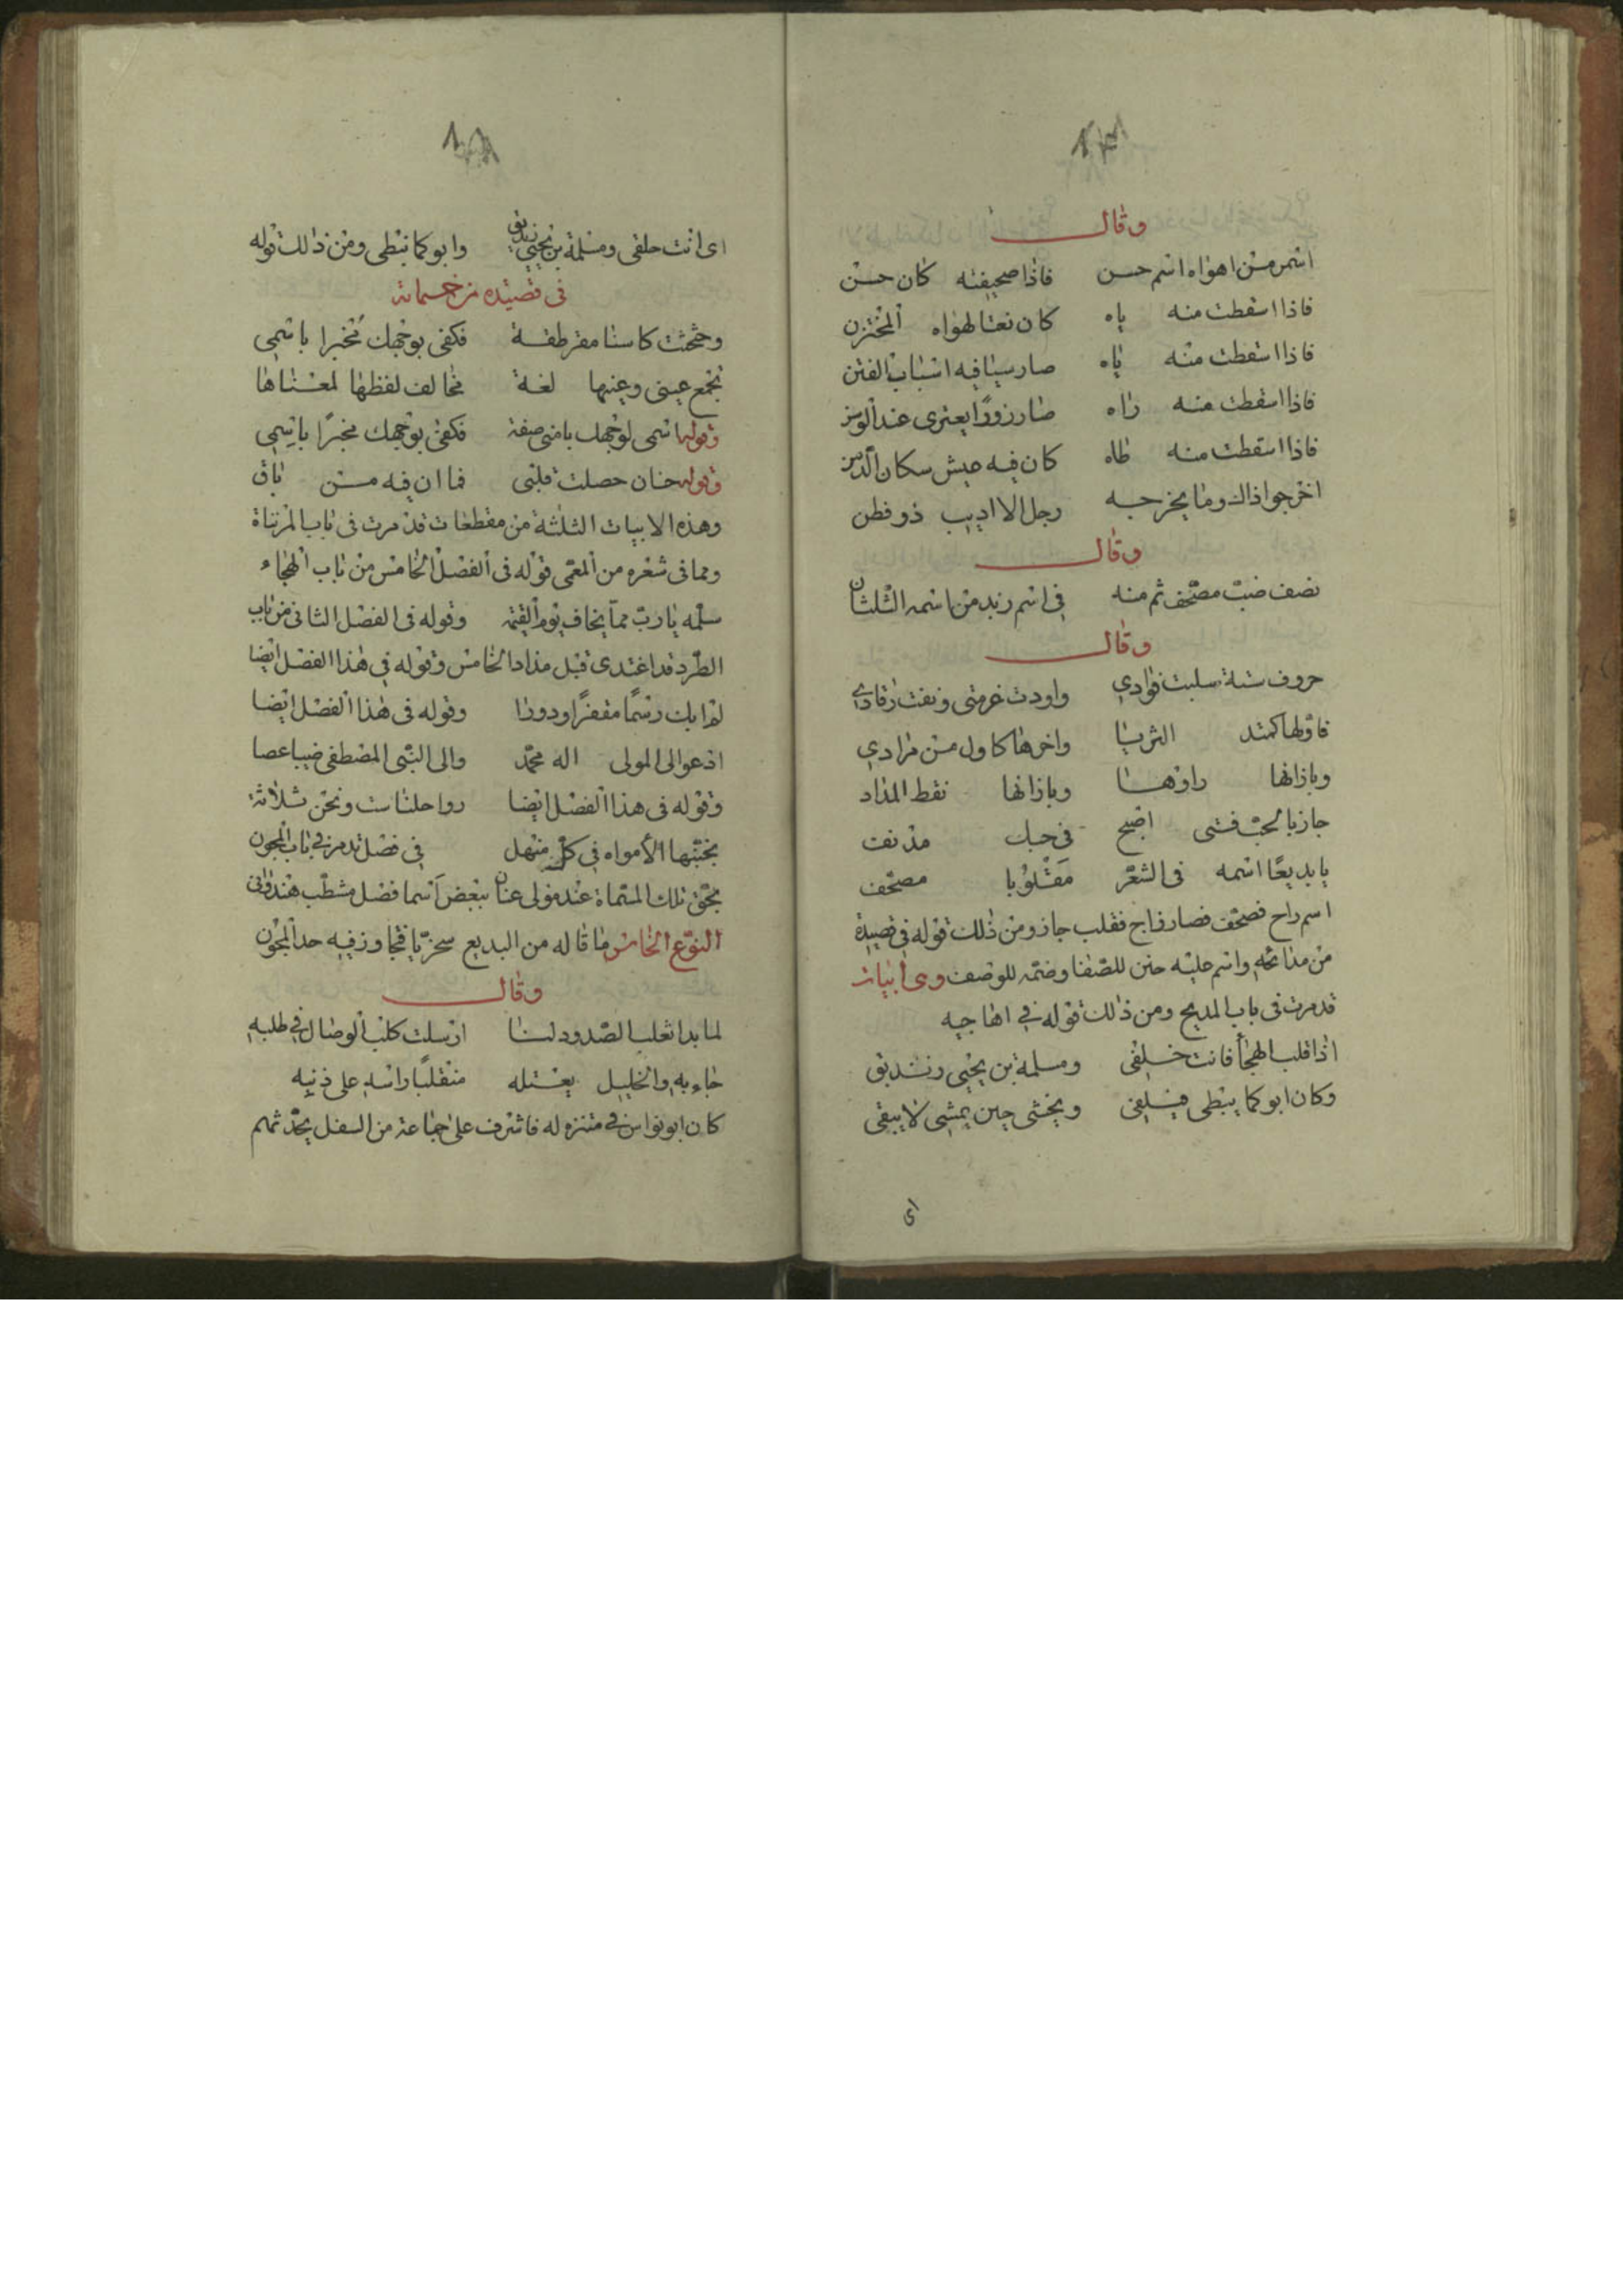 وقال
اسم من اهواه اسم حسن فاذا صحيفته كان حسن
فاذا اسقطت منه ياه كان نعتا لهواه المختزن
فاذا اسقطت منه ياه صار سيا فيه اسباب الفتن
فاذا اسقطت منه راه صار زورا يعترى عند الوسن
فاذا اسقطت منه طاه كان فيه عيش سكان المدن
اخرجوا ذالك وما يخرجه رجل الا اديب ذو فطن
وقال
نصف ضبّ مصحّف ثم منه فى اسم زيد من اسمه الثلثان
وقال
حروف ستة سلبت فوادي واودت عزمتى ونفت رقادي
فاولها كمتد الثريا واخرها كاول من مرادي
وبازائها راوها وبازائها نقط المداد
جاز بالمحب فتى اصبح فى حبك مدنف
يا بديعا اسمه فى الشعر مقلوبا مصحف
اسم راح فصحف فصار زاج فقلب جاز ومن ذلك قوله فى قصيدة
من مدائحه واسم عليه حنن للصفا وضمه للوصف وهى أبيات
قد مرت فى باب المديح ومن ذلك قوله فى اهاجيه
اذا قلب الهجا فانت خلفى ومسلمة بن يحيى زنديق
وكان ابو كما ينبطى فيلفى ويخشى حين يمشى لا يبقى
اى
اى انت حلقى ومسلمة بن يحيى زنديق وابو كما نبطى ومن ذلك قوله
فى قصيده من خمرياته
وحثحثت كاسنا مقرطقة فكفى بوجهك مخبرا باسمى
تجمع عينى وعينها لغة مخالف لفظها لمعناها
وقوله اسمى لوجهك يا منى صفة فكفى بوجهك مخبرًا باسمى
وقوله خان حصلت قلبى فما ان فيه من باق
وهذه الابيات الثلثة من مقطعات قد مرت فى باب المرتباة
ومما فى شعره من المعمى قوله فى الفصل الخامس من باب الهجاء
سلمه يا ربّ مما يخاف يوم القيمة وقوله فى الفصل الثانى من باب
الطرد قد اغتدى قبل مذاد الخامس وقوله فى هذا الفصل ايضا
لم ابك رسمًا مقفرًا ودورا وقوله فى هذا الفصل ايضا
ادعو الى المولى اله محمد والى النبى المصطفى ضيبا عصا
وقوله فى هذا الفصل ايضا رواحلنا ست ونحن ثلاثة
يجنّبها الأمواه فى كلّ منهل فى فصل قد مر فى باب المجون
بحق تلك المسماة عند مولى عنان ببعض اسما فضل مشطب هندوانى
النوع الخامس ما قاله من البديع سخريّا فتجاوز فيه حد المجون
وقال
لما بدا ثعلب الصدود لنا ارسلت كلب الوصال فى طلبه
جاء به والخليل يعتله منقلبًا راسه على ذنبه
كان ابو نواس فى متنزه له فاشرف على جماعة من السفل يحدّثهم